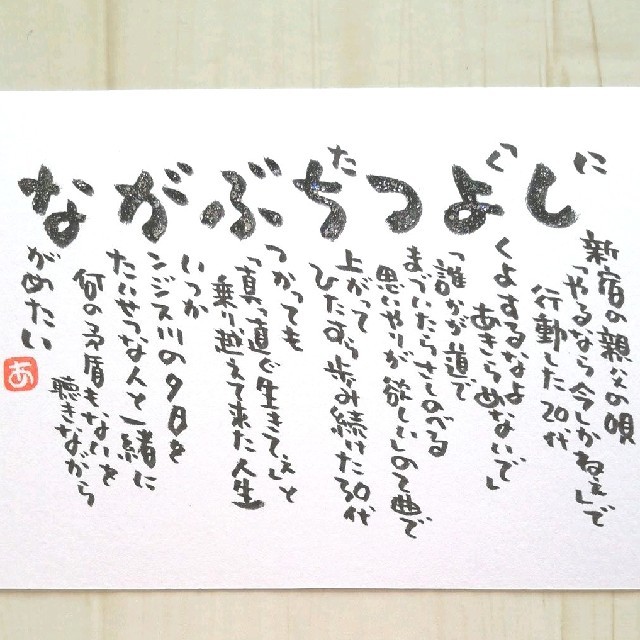 にじ
新宿の親父の唄
「やるなら今しかねぇ」で
行動した20代
くよ
くよするなよ
あきらめないで」
「誰かが道で
つ
まづいたらさしのべる
思いやりが欲しい」の曲で
たち
上がって
ひたすら歩み続けた30代
ぶ
つかっても
「真っ直ぐ生きてぇ」と
乗り越えて来た人生
いつか
が
ンジス川の夕日を
たいせつな人と一緒に
何の矛盾もないを
聴きながら
な
がめたい
あ